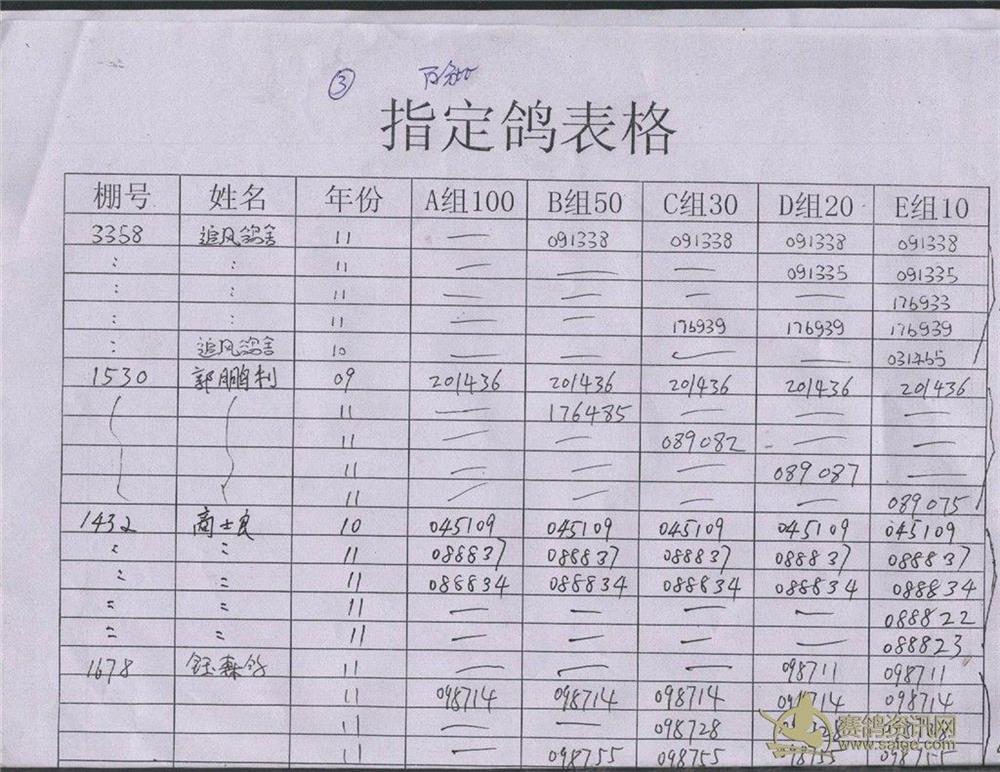 ③
指定鸽表格
棚号 姓名 年份 A组100 B组50 C组30 D组20 E组10
3358 追风鸽舍 11 — 091338 091338 091338 091338
: : 11 — — — 091335 091335
: : 11 — — — — 176933
: : 11 — — 176939 176939 176939
: 追风鸽舍 10 — — — — 031765
1530 郭鹏利 09 201436 201436 201436 201436 201436
11 — 176485 — — —
11 — — 089082 — —
11 — — — 089087 —
11 — — — — 089075
1432 商士良 10 045109 045109 045109 045109 045109
〃 〃 11 088837 088837 088837 088837 088837
〃 〃 11 088834 088834 088834 088834 088834
〃 〃 11 — — — — 088822
〃 〃 11 — — — — 088823
1678 钰森鸽 11 — — — 098711 098711
11 098714 098714 098714 098714 098714
11 — — 098728
11 — 098755 098755 098755 098755
赛鸽资讯网
www.saige.com